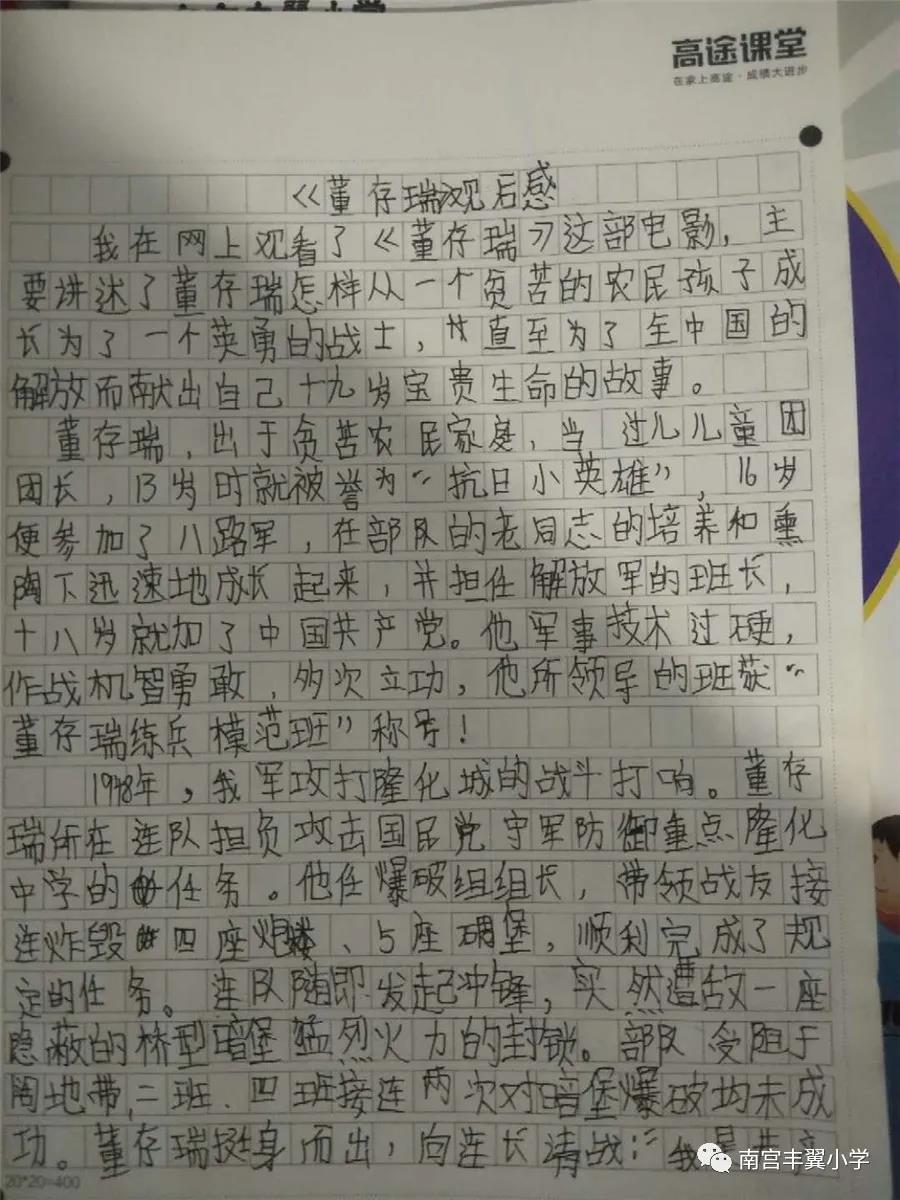 高途课堂
在家上高途·成绩大进步
《董存瑞观后感
我在网上观看了《董存瑞》这部电影，主
要讲述了董存瑞怎样从一个贫苦的农民孩子成
长为了一个英勇的战士，直至为了全中国的
解放而献出自己十九岁宝贵生命的故事。
董存瑞，出于贫苦农民家庭，当过儿儿童团
团长，13岁时就被誉为“抗日小英雄”，16岁
便参加了八路军，在部队的老同志的培养和熏
陶下迅速地成长起来，并担任解放军的班长，
十八岁就加了中国共产党。他军事技术过硬，
作战机智勇敢，多次立功，他所领导的班获“
董存瑞练兵模范班”称号！
1948年，我军攻打隆化城的战斗打响。董存
瑞所在连队担负攻击国民党守军防御重点隆化
中学的任务。他任爆破组组长，带领战友接
连炸毁四座炮楼、5座碉堡，顺利完成了规
定的任务。连队随即发起冲锋，突然遭敌一座
隐蔽的桥型暗堡猛烈火力的封锁。部队受阻于
地带，二班、四班接连两次对暗堡爆破均未成
功。董存瑞挺身而出，向连长请战：“我是共产
20*20=400
南宫丰翼小学